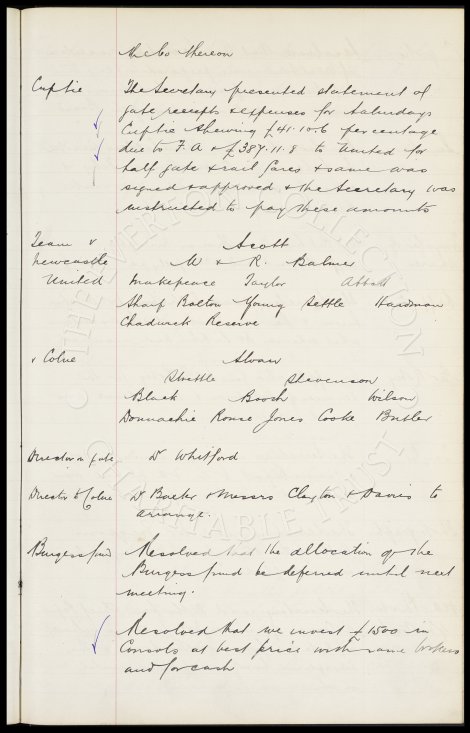 the Co thereon
Cup tie The Secretary presented statement of
gate receipts & expenses for Saturdays
Cup tie shewing £41.10.6 percentage
due to F.A & £387.11.8 to United for
half gate & rail fares & same was
signed & approved & the Secretary was
instructed to pay these amounts
Team v Scott
Newcastle W & R. Balmer
United Makepeace Taylor Abbott
Sharp Bolton Young Settle Hardman
Chadwick Reserve
v Colne Sloan
Strettle Stevenson
Black Booth Wilson
Donnachie Rouse Jones Cooke Butler
Director in gate Dr Whitford
Director to Colne Dr Baxter & Messrs Clayton & Davies to
arrange.
Burgess fund Resolved that the allocation of the
Burgess fund be deferred until next
meeting.
Resolved that we invest £1500 in
Consols at best price with same brokers
and for cash
THE EVERTON COLLECTION
CHARITABLE TRUST